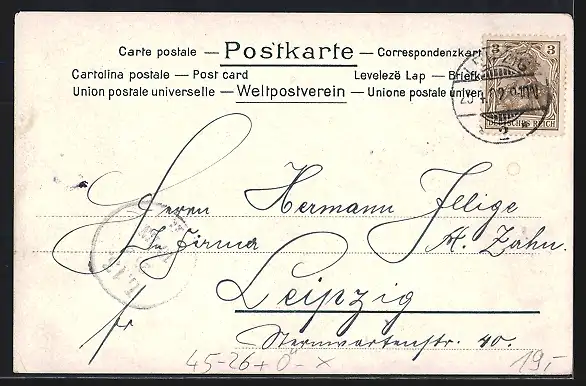 Carte postale — Postkarte — Correspondenzkart
Cartolina postale — Post card
Levelezö Lap — Briefk
Union postale universelle — Weltpostverein — Unione postale univer
3 3
DEUTSCHES REICH
LEIPZIG
2
Herrn Hermann Jllige
In Firma A. Zahn.
Leipzig
fr Sternwartenstr. 40.
45-26+Ö-x
19,-